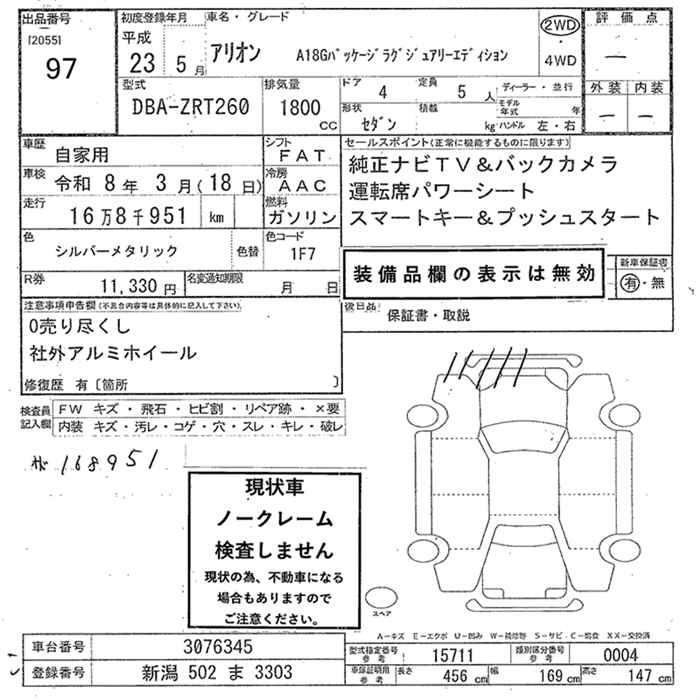 出品番号
[2055]
97
初度登録年月
平成
23年 5月
車名・グレード
アリオン A18Gパッケージラグジュアリーエディション
2WD
・
4WD
評価点
―
外装 内装
― ―
型式
DBA-ZRT260
排気量
1800
CC
ドア 4 定員 5 人
形状
セダン
積載
kg
ディーラー・並行
モデル年式 年
ハンドル 左・右
車歴 自家用
車検 令和 8年 3月(18日)
走行 16万8千951 km
シフト FAT
冷房 AAC
燃料 ガソリン
色 シルバーメタリック 色替
色コード 1F7
R券 11,330円
名変通知期限 月 日
セールスポイント(正常に機能するものに限ります)
純正ナビTV&バックカメラ
運転席パワーシート
スマートキー&プッシュスタート
装備品欄の表示は無効
新車保証書
有・無
後日品
保証書・取説
注意事項申告欄(不具合内容等は具体的に記入して下さい)
0売り尽くし
社外アルミホイール
修復歴 有〔箇所 〕
検査員記入欄
FW キズ・飛石・ヒビ割・リペア跡・×要
内装 キズ・汚レ・コゲ・穴・スレ・キレ・破レ
168951
現状車
ノークレーム
検査しません
現状の為、不動車になる
場合もありますので
ご注意ください。
スペア
車台番号 3076345
登録番号 新潟 502 ま 3303
型式指定番号 参考 15711
類別区分番号 参考 0004
車検証用 参考
長さ 456 cm 幅 169 cm 高さ 147 cm